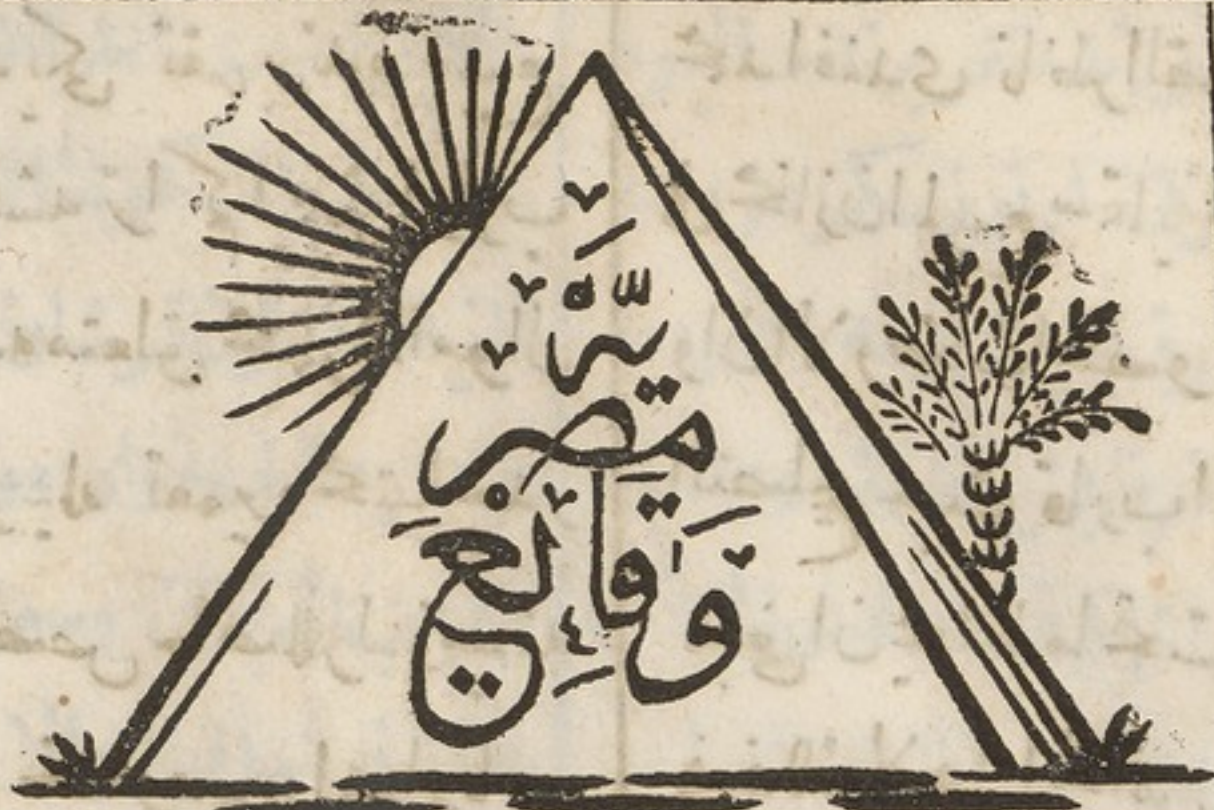 وقائع
مصريّه